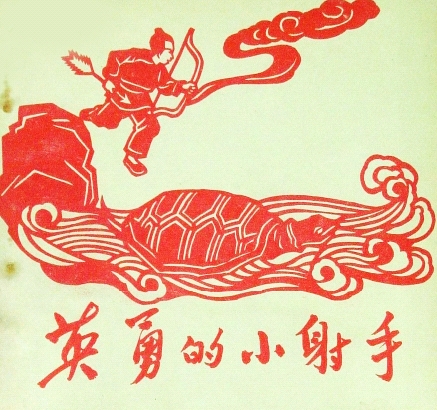 英勇的小射手